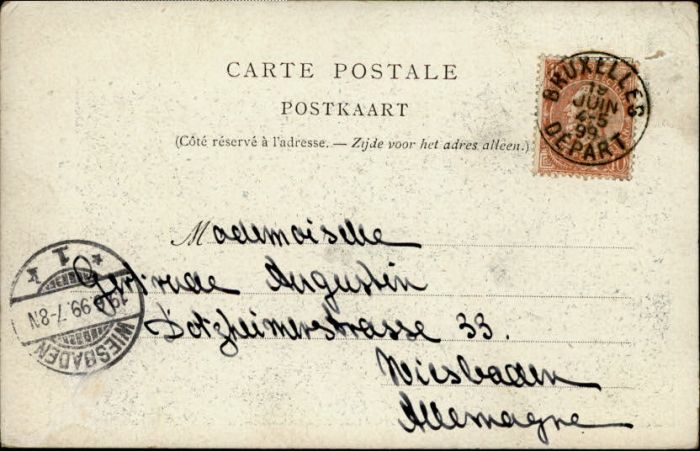 CARTE POSTALE
POSTKAART
(Côté réservé à l'adresse. — Zijde voor het adres alleen.)
BRUXELLES
19
JUIN
4-5
99
DÉPART
10
Mademoiselle
Gertrude Augustin
Dotzheimerstrasse 33.
Wiesbaden
Allemagne
1
19.6.99.7-8N
WIESBADEN